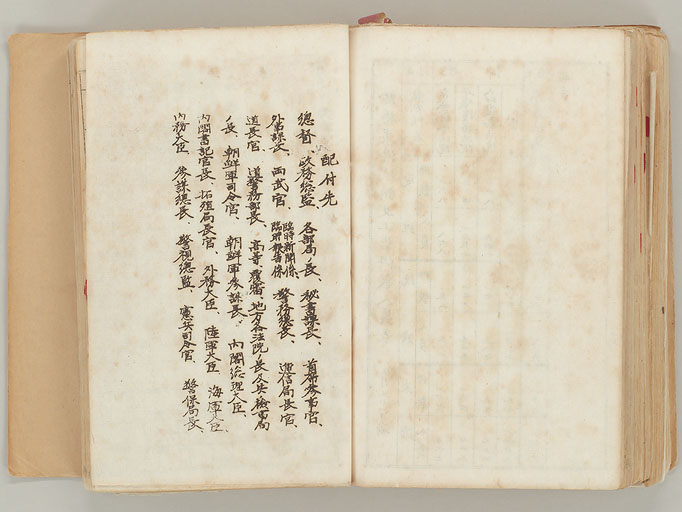 配付先
總督、政務總監、各部局長、秘書課長、首席參事官、
外事課長、両武官、臨時新聞係、臨時報告係 警務總長、逓信局長官、
道長官 道警務部長、高等、覆審、地方各法院ノ長及共檢事局
ノ長、朝鮮軍司令官、朝鮮軍參謀長、内閣總理大臣、
内閣書記官長、拓殖局長官、外務大臣、陸軍大臣 海軍大臣、
内務大臣、參謀總長、警視總監、憲兵司令官、警保局長、